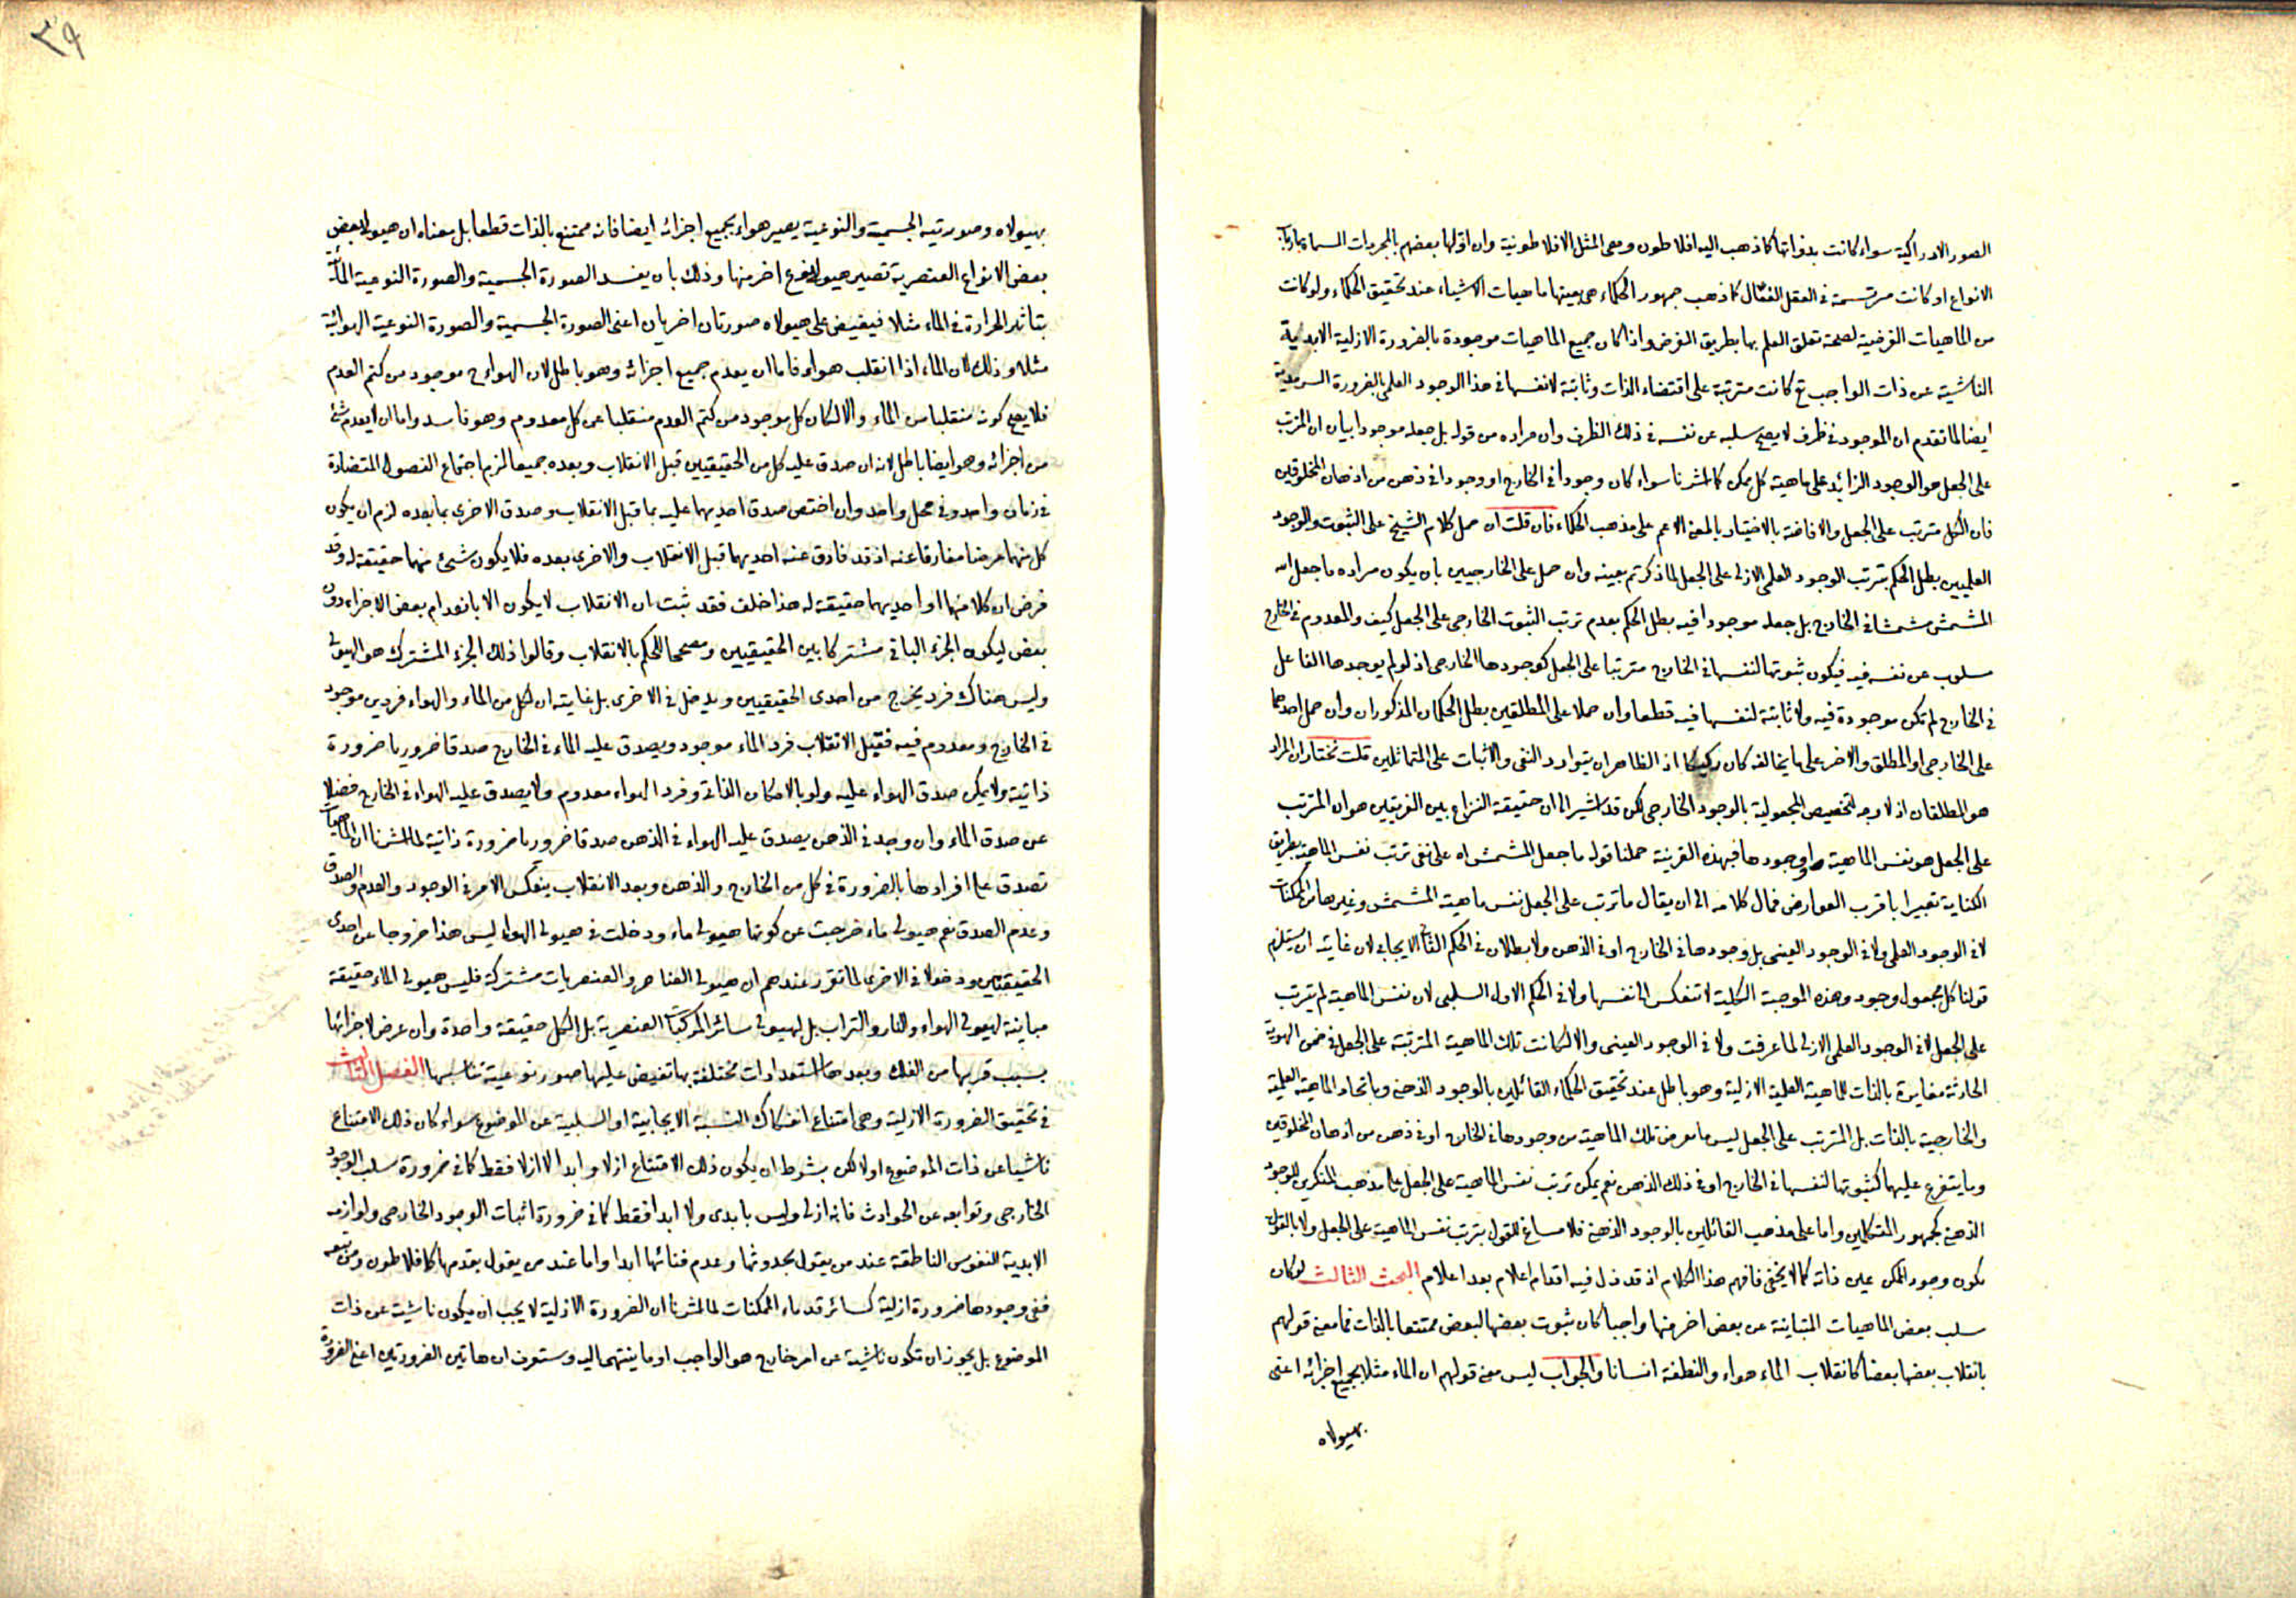 الصور الادراكية سواء كانت بذواتها كما ذهب اليه افلاطون وهى المثل الافلاطونية وان اوّلها بعضهم بالمجردات المسماة بارباب
الانواع او كانت مرتسمة فى العقل الفعّال كما ذهب جمهور الحكماء هى بعينها ماهيات الاشياء عند تحقيق الحكماء ولو كانت
من الماهيات الفرضية لصحة تعلق العلم بها بطريق الفرض واذا كان جميع الماهيات موجودة بالضرورة الازلية الابدية
الناشية عن ذات الواجب تع كانت مترتبة على اقتضاء الذات وثابتة لانفسها فى هذا الوجود العلمى بالضرورة السرمدية
ايضا لما تقدم ان الموجود فى ظرف لا يصح سلبه عن نفسه فى ذلك الظرف وان مراده من قوله بل جعله موجودا بيان ان المترتب
على الجعل هو الوجود الزائد على ماهية كل ممكن كما اشرنا سواء كان وجودا فى الخارج او وجودا فى ذهن من اذهان المخلوقين
فان الكل مترتب على الجعل والافاضة بالاختيار بالمعنى الاعم على مذهب الحكماء فان قلت ان حمل كلام الشيخ على الثبوت والوجود
العلميين بطل الحكم بترتب الوجود العلمى الازلى على الجعل لما ذكرتم بعينه وان حمل على الخارجيين بان يكون مراده ما جعل الله
المشمش مشمشا فى الخارج بل جعله موجودا فيه بطل الحكم بعدم ترتب الثبوت الخارجى على الجعل كيف والمعدوم فى الخارج
مسلوب عن نفسه فيه فيكون ثبوتها لنفسها فى الخارج مترتبا على الجعل كوجودها الخارجى اذ لو لم يوجدها الفاعل
فى الخارج لم تكن موجودة فيه ولا ثابتة لنفسها فيه قطعا وان حملا على المطلقين بطل الحكمان المذكوران وان حمل احدهما
على الخارجى او المطلق والاخر على ما يخالفه كان ركيكا اذ الظاهر ان يتوارد النفى والاثبات على المتماثلين قلت نختار ان المراد
هو المطلقان اذ لا وجه لتخصيص المجعولية بالوجود الخارجى لكن قد اشير الى ان حقيقة النزاع بين الفريقين هو ان المترتب
على الجعل هو نفس الماهية او وجودها فبهذه القرينة حملنا قوله ما جعل المشمش اه على نفى ترتب نفس الماهية بطريق
الكناية تعبيرا باقرب العوارض فمال كلامه الى ان يقال ما ترتب على الجعل نفس ماهية المشمش وغيرها من الممكنات
لا فى الوجود العلمى ولا فى الوجود العينى بل وجودها فى الخارج او فى الذهن ولا بطلان فى الحكم الثانى الايجابى لان غايته ان يستلزم
قولنا كل مجعول وجود وهذه الموجبة الكلية لا تنعكس الى نفسها ولا فى الحكم الاول السلبى لان نفس الماهية لم يترتب
على الجعل لا فى الوجود العلمى الازلى لما عرفت ولا فى الوجود العينى والا لكانت تلك الماهية المترتبة على الجعل فى ضمن الهوية
الحادثة مغايرة بالذات للماهية العلمية الازلية وهو باطل عند تحقيق الحكماء القائلين بالوجود الذهنى وباتحاد الماهية العلمية
والخارجية بالذات بل المترتب على الجعل ليس ما عرض تلك الماهية من وجودها فى الخارج او فى ذهن من اذهان المخلوقين
وما يتفرع عليها كثبوتها لنفسها فى الخارج او فى ذلك الذهن نعم يمكن ترتب نفس الماهية على الجعل على مذهب المنكرين للوجود
الذهنى كجمهور المتكلمين واما على مذهب القائلين بالوجود الذهنى فلا مساغ للقول بترتب نفس الماهية على الجعل ولا بالقول
بكون وجود الممكن عين ذاته كما لا يخفى فافهم هذا الكلام اذ قد زل فيه اقدام اعلام بعد اعلام البحث الثالث لو كان
سلب بعض الماهيات المتباينة عن بعض اخر منها واجبا كان ثبوت بعضها لبعض ممتنعا بالذات فما معنى قولهم
بانقلاب بعضها بعضا كانقلاب الماء هواء والنطفة انسانا والجواب ليس معنى قولهم ان الماء مثلا بجميع اجزائه اعنى
بهيولاه
٣٩
بهيولاه وصورتيه الجسمية والنوعية يصير هواء بجميع اجزائه ايضا فانه ممتنع بالذات قطعا بل معناه ان هيولى بعض
بعض الانواع العنصرية تصير هيولى لنوع اخر منها وذلك بان يفسد الصورة الجسمية والصورة النوعية المائية
بتاثير الحرارة فى الماء مثلا فيفيض على هيولاه صورتان اخريان اعنى الصورة الجسمية والصورة النوعية الهوائية
مثلا وذلك لان الماء اذا انقلب هواء فاما ان يعدم جميع اجزائه وهو باطل لان الهواء ح موجود من كتم العدم
فلا يصح كونه منقلبا من الماء والا لكان كل موجود من كتم العدم منقلبا عن كل معدوم وهو فاسد واما ان لا يعدم شئ
من اجزائه وهو ايضا باطل لانه ان صدق عليه كل من الحقيقيين قبل الانقلاب وبعده جميعا لزم اجتماع الفصول المتضادة
فى زمان واحد وفى محل واحد وان اختص صدق احديهما عليه بما قبل الانقلاب وصدق الاخرى بما بعده لزم ان يكون
كل منهما عرضا مفارقا عنه اذ قد فارق عنه احديهما قبل الانقلاب والاخرى بعده فلا يكون شئ منهما حقيقة له وقد
فرض ان كلا منهما او احديهما حقيقة له هذا خلف فقد ثبت ان الانقلاب لا يكون الا بانعدام بعض الاجزاء دون
بعض ليكون الجزء الباقى مشتركا بين الحقيقيين ومصححا للحكم بالانقلاب وقالوا ذلك الجزء المشترك هو الهيولى
وليس هناك فرد يخرج من احدى الحقيقيين ويدخل فى الاخرى بل غايته ان لكل من الماء والهواء فردين موجود
فى الخارج ومعدوم فيه فقبل الانقلاب فرد الماء موجود ويصدق عليه الماء فى الخارج صدقا ضروريا ضرورة
ذاتية ولا يمكن صدق الهواء عليه ولو بالامكان الذاتى وفرد الهواء معدوم ولا يصدق عليه الهواء فى الخارج فضلا
عن صدق الماء وان وجد فى الذهن يصدق عليه الهواء فى الذهن صدقا ضروريا ضرورة ذاتية لما اشرنا ان الماهيات
تصدق على افرادها بالضرورة فى كل من الخارج والذهن وبعد الانقلاب ينعكس الامر فى الوجود والعدم والصدق
وعدم الصدق نعم هيولى ماء خرجت عن كونها هيولى ماء ودخلت فى هيولى الهواء ليس هذا خروجا عن احدى
الحقيقيين ودخولا فى الاخرى لما تقرر عندهم ان هيولى العناصر والعنصريات مشتركة فليس هيولى الماء حقيقة
مباينة لهيولى الهواء والنار والتراب بل لهيولى سائر المركبات العنصرية بل الكل حقيقة واحدة وان عرض لاجزائها
بسبب قربها من الفلك وبعدها استعدادات مختلفة بها تفيض عليها صور نوعية تناسبها الفصل الثالث
فى تحقيق الضرورة الازلية وهى امتناع انفكاك النسبة الايجابية او السلبية عن الموضوع سواء كان ذلك الامتناع
ناشيا عن ذات الموضوع او لا لكن بشرط ان يكون ذلك الامتناع ازلا وابدا لا ازلا فقط كما فى ضرورة سلب الوجود
الخارجى وتوابعه عن الحوادث فانه ازلى وليس بابدى ولا ابدا فقط كما فى ضرورة اثبات الوجود الخارجى ولوازمه
الابدية للنفوس الناطقة عند من يقول بحدوثها وعدم فنائها ابدا واما عند من يقول بقدمها كافلاطون ومن تبعه
ففى وجودها ضرورة ازلية كسائر قدماء الممكنات لما اشرنا ان الضرورة الازلية لا يجب ان يكون ناشية عن ذات
الموضوع بل يجوز ان تكون ناشية عن امر خارج هو الواجب او ما ينتهى اليه وستعرف ان هاتين الضرورتين اعنى الضرورة